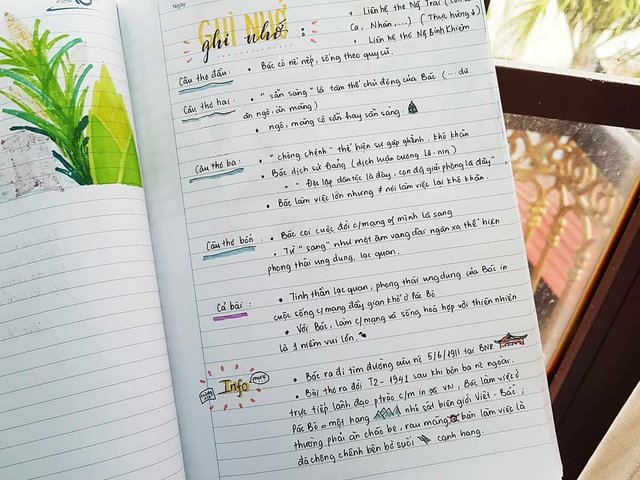 Ngày
GHI NHỚ
ghi nhớ :
+ Liên hệ thơ Ng Trãi (Côn
Ca, Nhàn,...) ( Thực hứng ↓)
• Liên hệ thơ Ng Bỉnh Khiêm
Câu thơ đầu: • Bác có nề nếp, sống theo quy củ.
Câu thơ hai: • "sẵn sàng" là tâm thế chủ động của Bác (... dù
ăn ngô, ăn măng)
• ngô, măng có sẵn hay sẵn sàng.
Câu thơ ba: • "chông chênh" thể hiện sự gập ghềnh, khó khăn
• Bác dịch sử Đảng (dịch luận cương Lê-nin)
+ "Độc lập dân tộc là đây, con đg giải phóng là đây"
• Bác làm việc lớn nhưng # nơi làm việc lại khó khăn.
Câu thơ bốn: • Bác coi cuộc đời c/mạng of mình là sang
• Từ "sang" như một âm vang dài ngân xa thể hiện
phong thái ung dung, lạc quan.
Cả bài: • Tinh thần lạc quan, phong thái ung dung của Bác in
cuộc sống c/mạng đầy gian khổ ở Pác Bó
• Với Bác, làm c/mạng và sống hoà hợp với thiên nhiên
là 1 niềm vui lớn.
Info more
• Bác ra đi tìm đường cứu nc 5/6/1911 tại BNR
• Bài thơ ra đời T2-1941 sau khi bôn ba nc ngoài.
trực tiếp lãnh đạo ptrào c/m in VN, Bác làm việc ở
Pác Bó = một hang nhỏ sát biên giới Việt-Bắc;
thường phải ăn cháo bẹ, rau măng bàn làm việc là
đá chông chênh bên bờ suối cạnh hang.